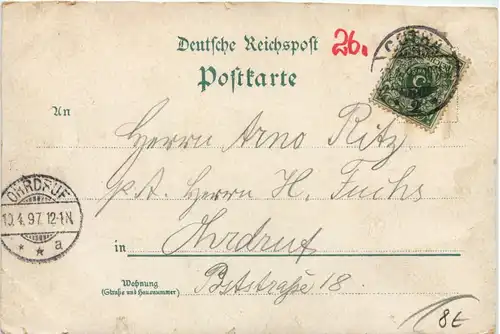 Deutsche Reichspost
26.
Postkarte
GOTHA
An
Herrn Arno Ritz
p. A. Herrn H. Fuchs
OHRDRUF
10.4.97. 12-1N.
* * a
in
Ohrdruf
Wohnung
(Straße und Hausnummer)
Poststraße 18
8€